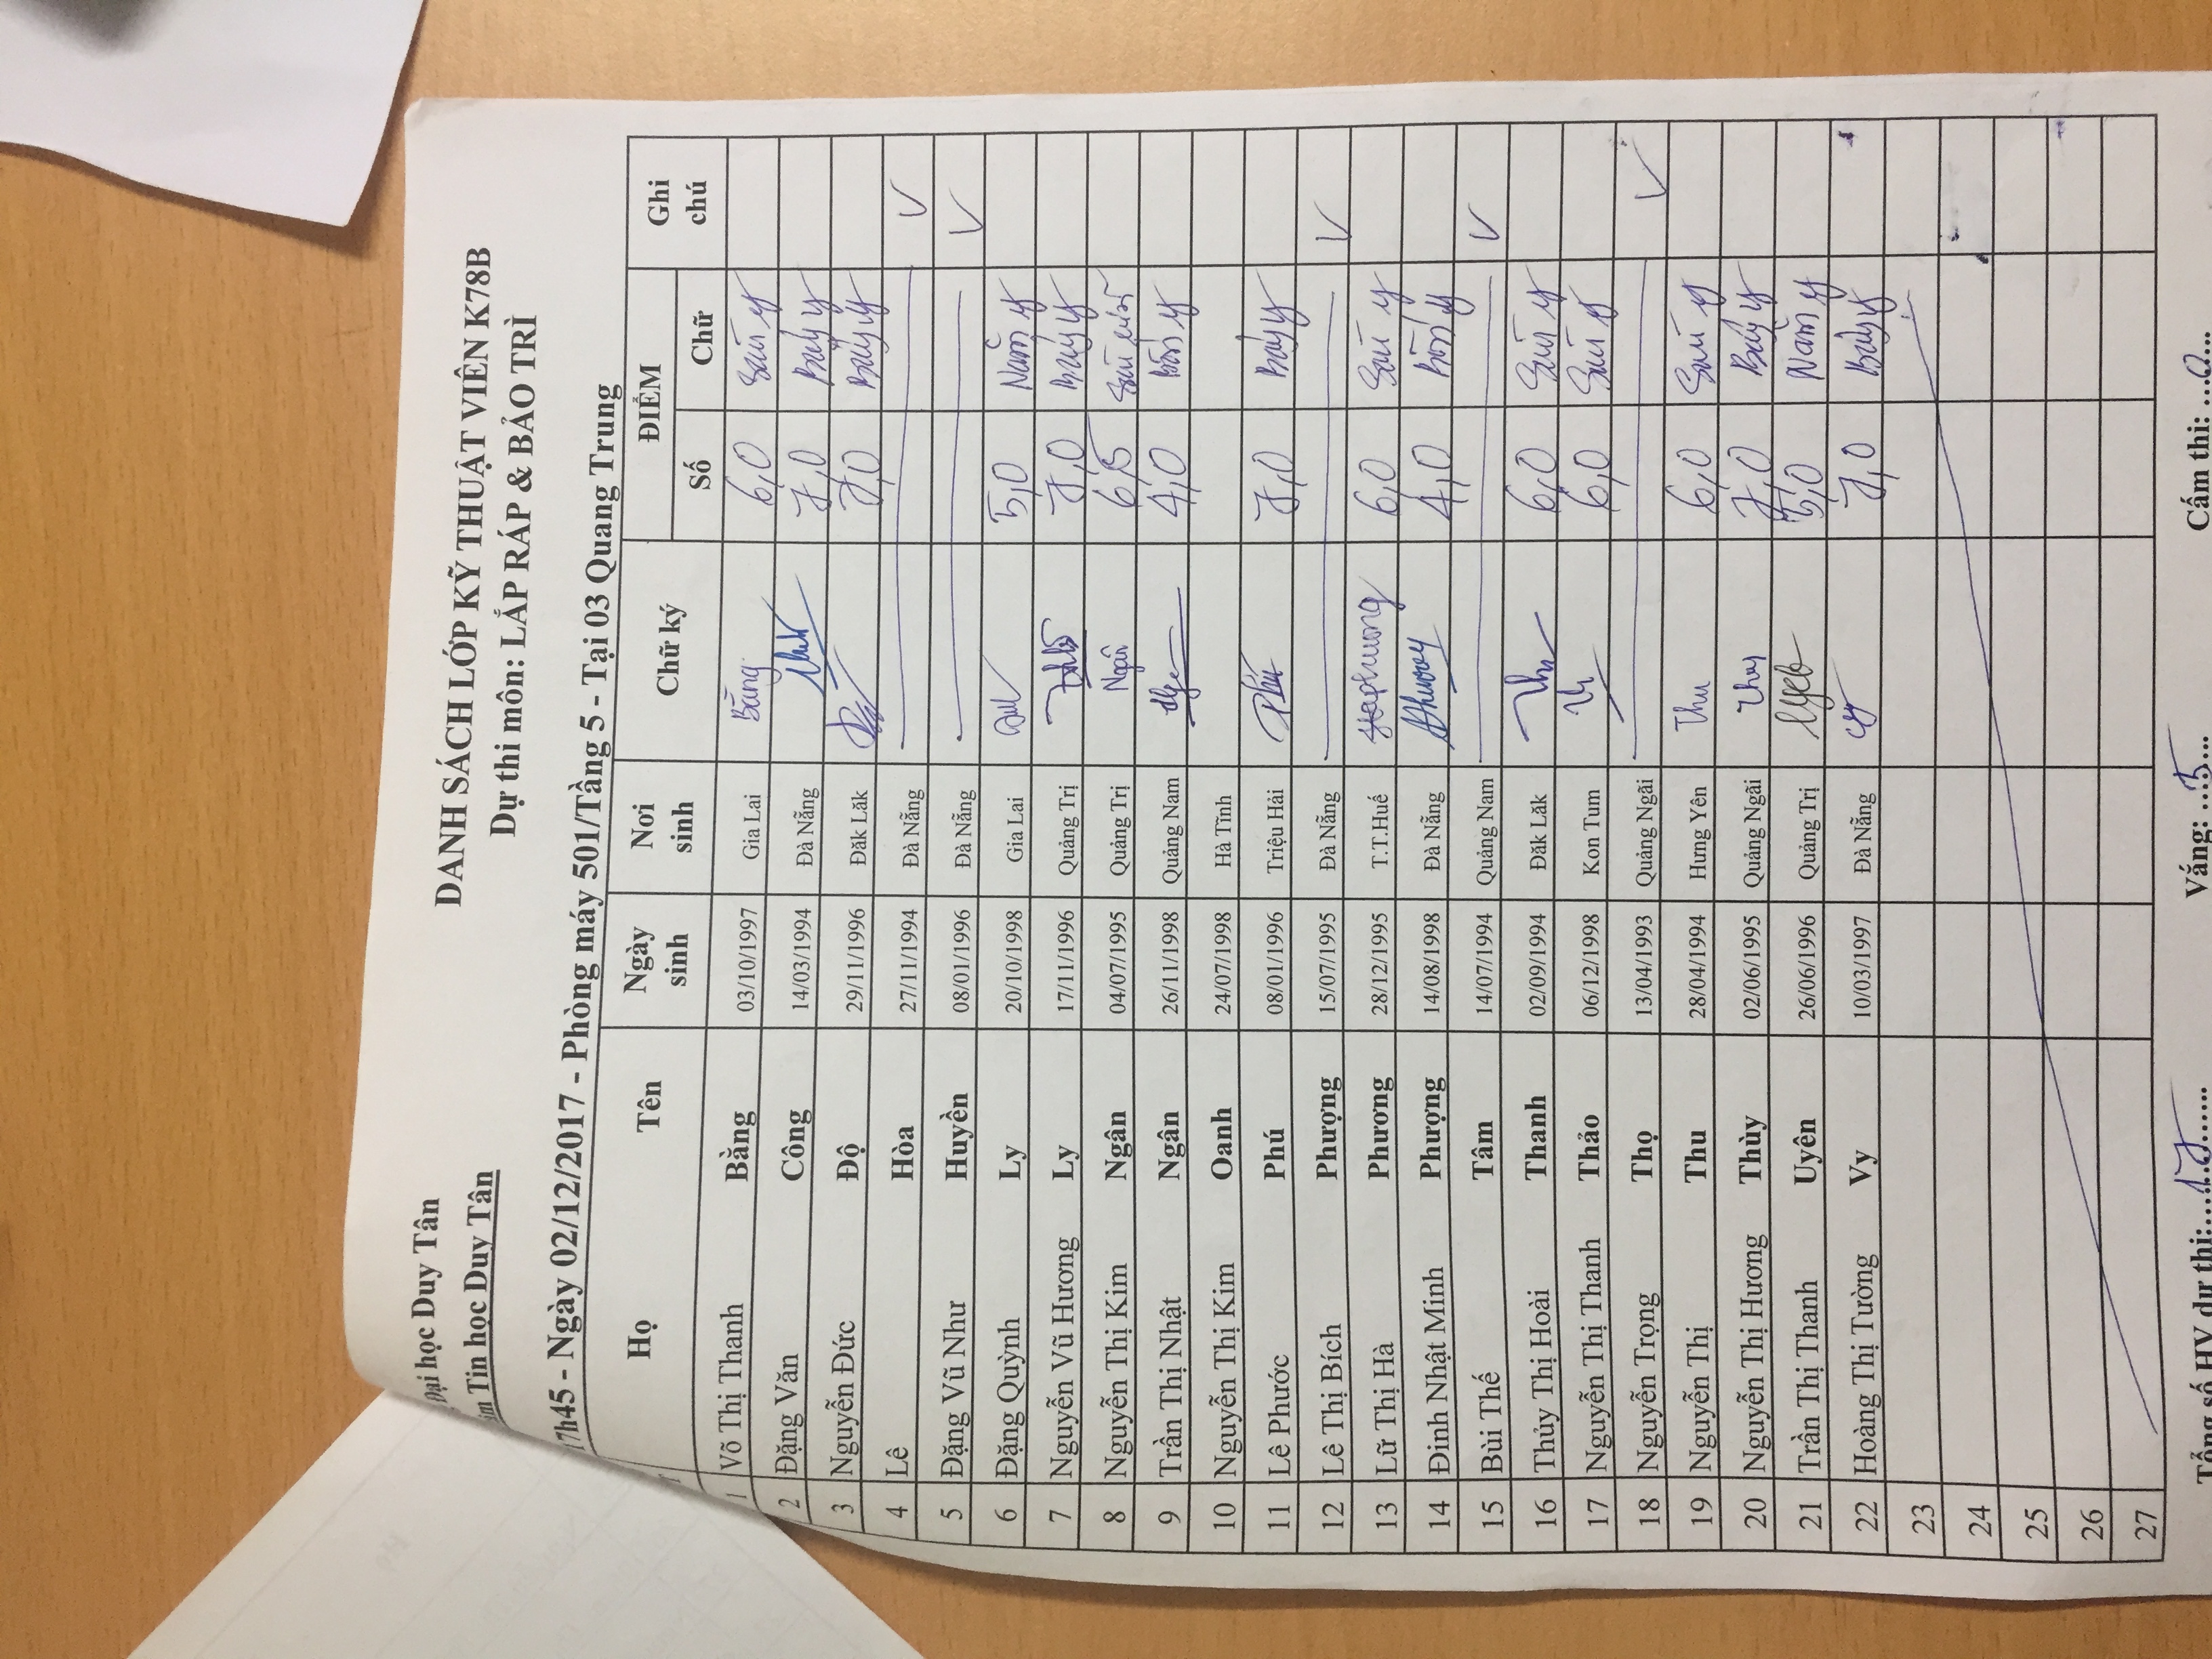 Đại học Duy Tân
Tin học Duy Tân
DANH SÁCH LỚP KỸ THUẬT VIÊN K78B
Dự thi môn: LẮP RÁP & BẢO TRÌ
17h45 - Ngày 02/12/2017 - Phòng máy 501/Tầng 5 - Tại 03 Quang Trung
Họ Tên Ngày sinh Nơi sinh Chữ ký ĐIỂM Ghi chú
Số Chữ
1 Võ Thị Thanh Bằng 03/10/1997 Gia Lai Bằng 6,0 Sáu y
2 Đặng Văn Công 14/03/1994 Đà Nẵng 7,0 Bảy y
3 Nguyễn Đức Độ 29/11/1996 Đăk Lăk 7,0 Bảy y
4 Lê Hòa 27/11/1994 Đà Nẵng V
5 Đặng Vũ Như Huyền 08/01/1996 Đà Nẵng V
6 Đặng Quỳnh Ly 20/10/1998 Gia Lai 5,0 Năm y
7 Nguyễn Vũ Hương Ly 17/11/1996 Quảng Trị 7,0 Bảy y
8 Nguyễn Thị Kim Ngân 04/07/1995 Quảng Trị Ngân 6,5 Sáu rưỡi
9 Trần Thị Nhật Ngân 26/11/1998 Quảng Nam 4,0 Bốn y
10 Nguyễn Thị Kim Oanh 24/07/1998 Hà Tĩnh
11 Lê Phước Phú 08/01/1996 Triệu Hải Phú 7,0 Bảy y
12 Lê Thị Bích Phượng 15/07/1995 Đà Nẵng V
13 Lữ Thị Hà Phương 28/12/1995 T.T.Huế Haphuong 6,0 Sáu y
14 Đinh Nhật Minh Phượng 14/08/1998 Đà Nẵng Phượng 4,0 Bốn y
15 Bùi Thế Tâm 14/07/1994 Quảng Nam V
16 Thủy Thị Hoài Thanh 02/09/1994 Đăk Lăk 6,0 Sáu y
17 Nguyễn Thị Thanh Thảo 06/12/1998 Kon Tum 6,0 Sáu y
18 Nguyễn Trọng Thọ 13/04/1993 Quảng Ngãi V
19 Nguyễn Thị Thu 28/04/1994 Hưng Yên Thu 6,0 Sáu y
20 Nguyễn Thị Hương Thùy 02/06/1995 Quảng Ngãi Thuy 7,0 Bảy y
21 Trần Thị Thanh Uyên 26/06/1996 Quảng Trị 5,0 Năm y
22 Hoàng Thị Tường Vy 10/03/1997 Đà Nẵng Vy 7,0 Bảy y
23
24
25
26
27
Tổng số HV dự thi:...17..... Vắng: ...5... Cấm thi: ...0...